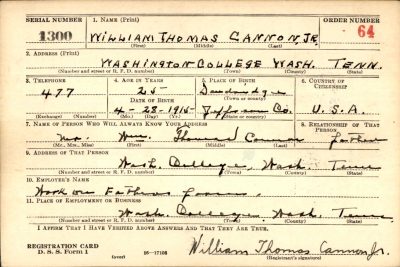 SERIAL NUMBER 1. NAME (Print) ORDER NUMBER
1300 WILLIAM THOMAS CANNON, JR. 64
(First) (Middle) (Last)
2. ADDRESS (Print)
WASHINGTON COLLEGE WASH. TENN.
(Number and street or R. F. D. number) (Town) (County) (State)
3. TELEPHONE 4. AGE IN YEARS 5. PLACE OF BIRTH 6. COUNTRY OF CITIZENSHIP
477 25 Dandridge
DATE OF BIRTH (Town or county)
4-28-1915 Jefferson Co. U.S.A.
(Exchange) (Number) (Mo.) (Day) (Yr.) (State or country)
7. NAME OF PERSON WHO WILL ALWAYS KNOW YOUR ADDRESS 8. RELATIONSHIP OF THAT PERSON
Mr. Wm. Thomas Cannon father
(Mr., Mrs., Miss) (First) (Middle) (Last)
9. ADDRESS OF THAT PERSON
Wash. College, Wash. Tenn
(Number and street or R. F. D. number) (Town) (County) (State)
10. EMPLOYER'S NAME
Work on Fathers farm
11. PLACE OF EMPLOYMENT OR BUSINESS
Wash. College, Wash. Tenn.
(Number and street or R. F. D. number) (Town) (County) (State)
I AFFIRM THAT I HAVE VERIFIED ABOVE ANSWERS AND THAT THEY ARE TRUE.
REGISTRATION CARD
D. S. S. Form 1 (over) 16-17105 William Thomas Cannon Jr.
(Registrant's signature)